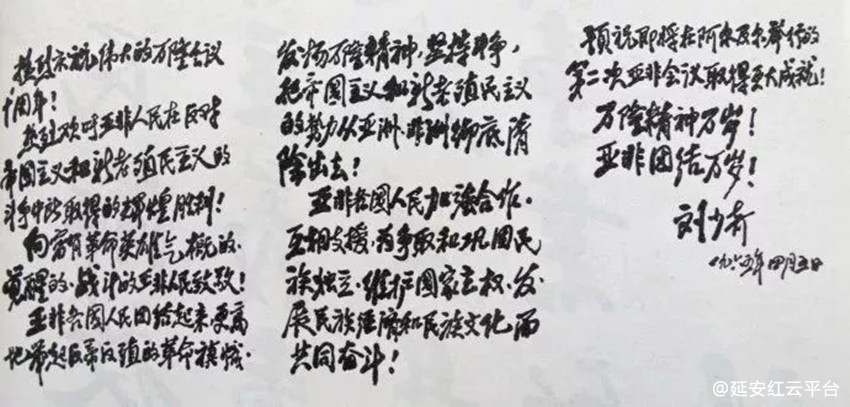 热烈庆祝伟大的万隆会议
十周年！
热烈欢呼亚非人民在反对
帝国主义和新老殖民主义的
斗争中所取得的辉煌胜利！
向富有革命英雄气概的、
觉醒的、战斗的亚非人民致敬！
亚非各国人民团结起来，更高
地举起反帝反殖的革命旗帜，
发扬万隆精神，坚持斗争，
把帝国主义和新老殖民主义
的势力从亚洲、非洲彻底清
除出去！
亚非各国人民加强合作，
互相支援，为争取和巩固民
族独立，维护国家主权，发
展民族经济和民族文化而
共同奋斗！
预祝即将在阿尔及尔举行的
第二次亚非会议取得更大成就！
万隆精神万岁！
亚非团结万岁！
刘少奇
一九六五年四月五日
@延安红云平台